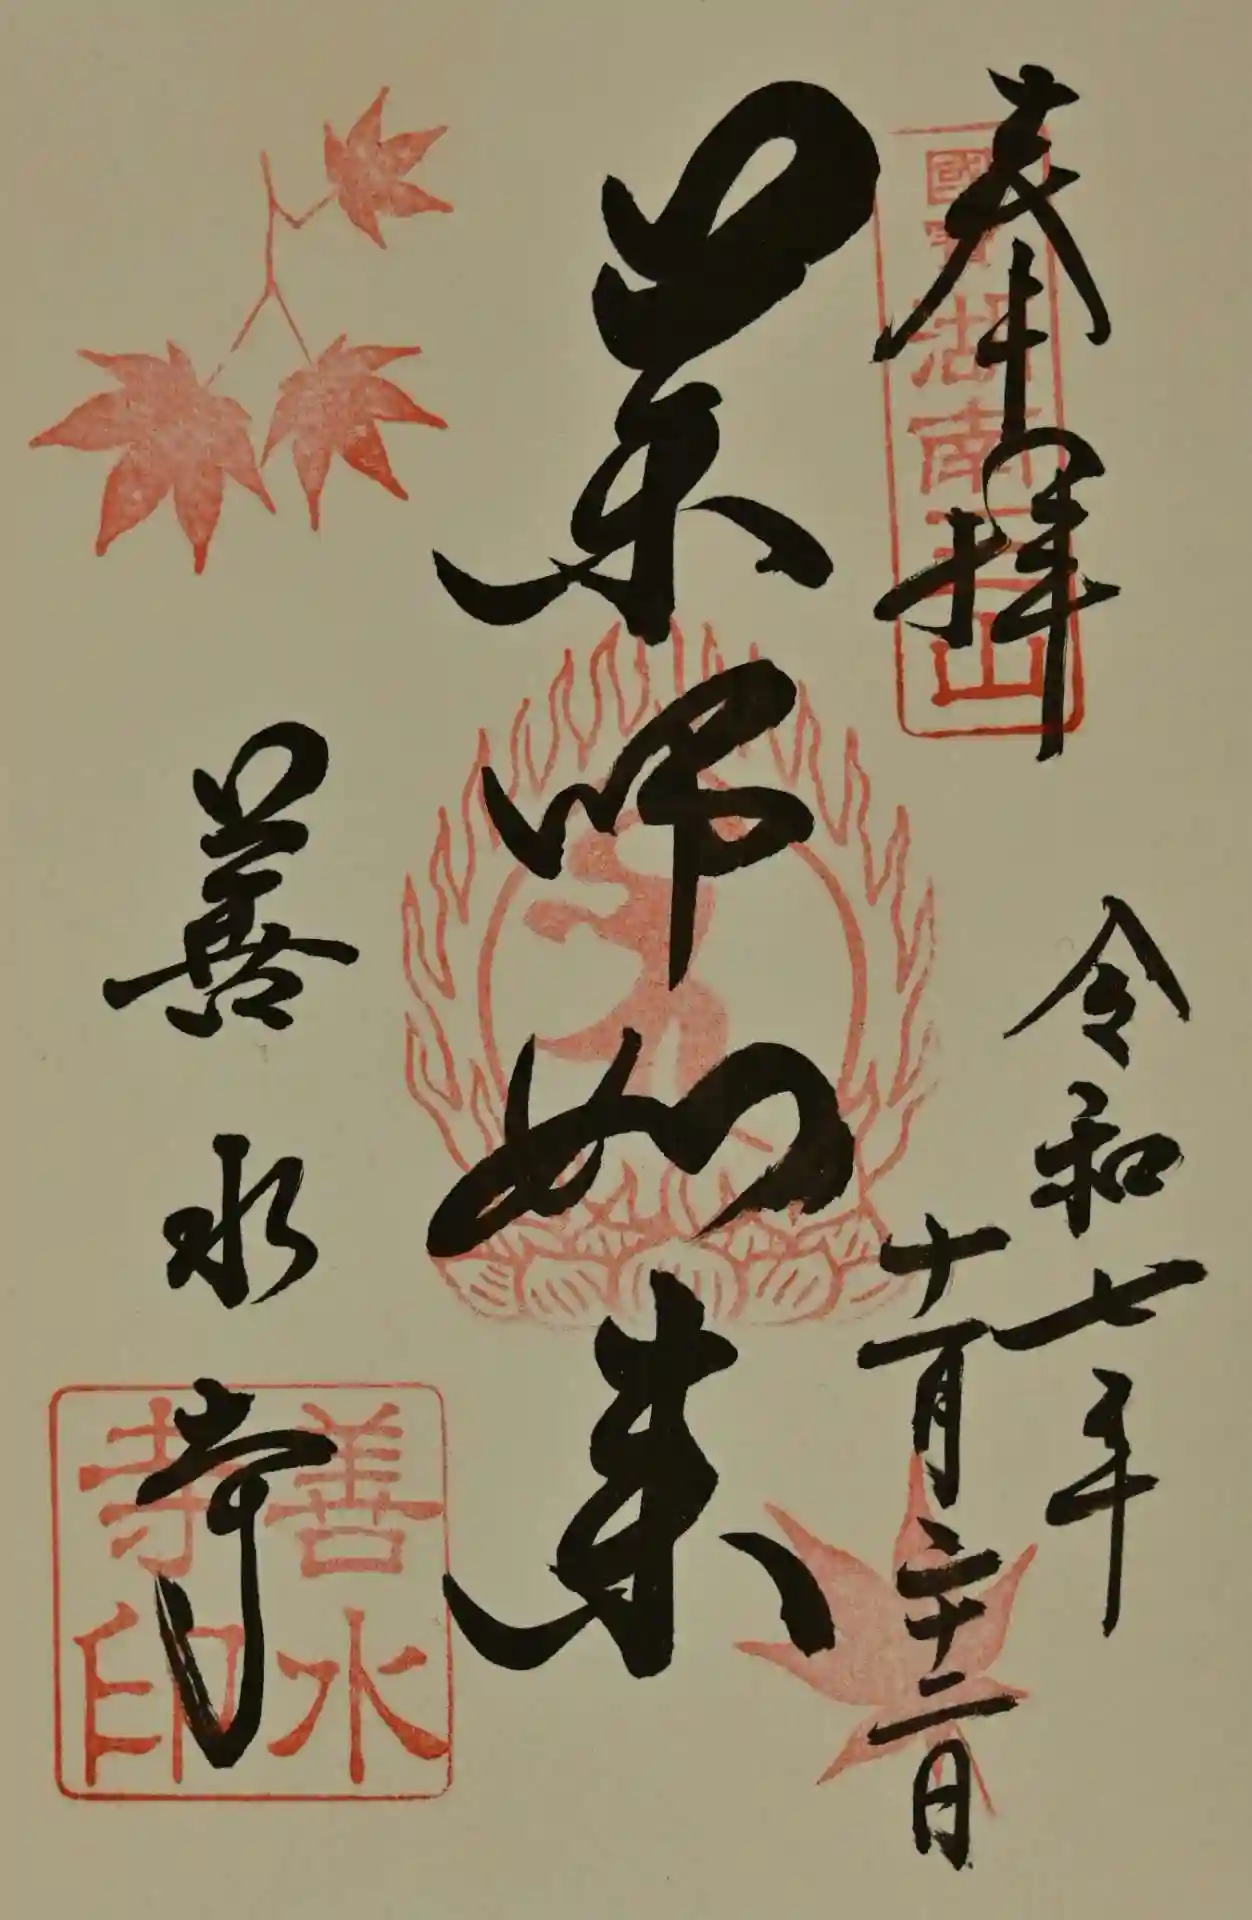 奉拝
國寶 湖南三山
令和七年
十一月二十二日
薬師如来
善水寺
善水寺印